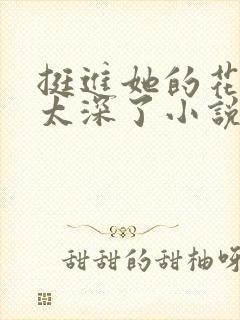 挺进她的花
太深了小说
甜甜的甜柚呀